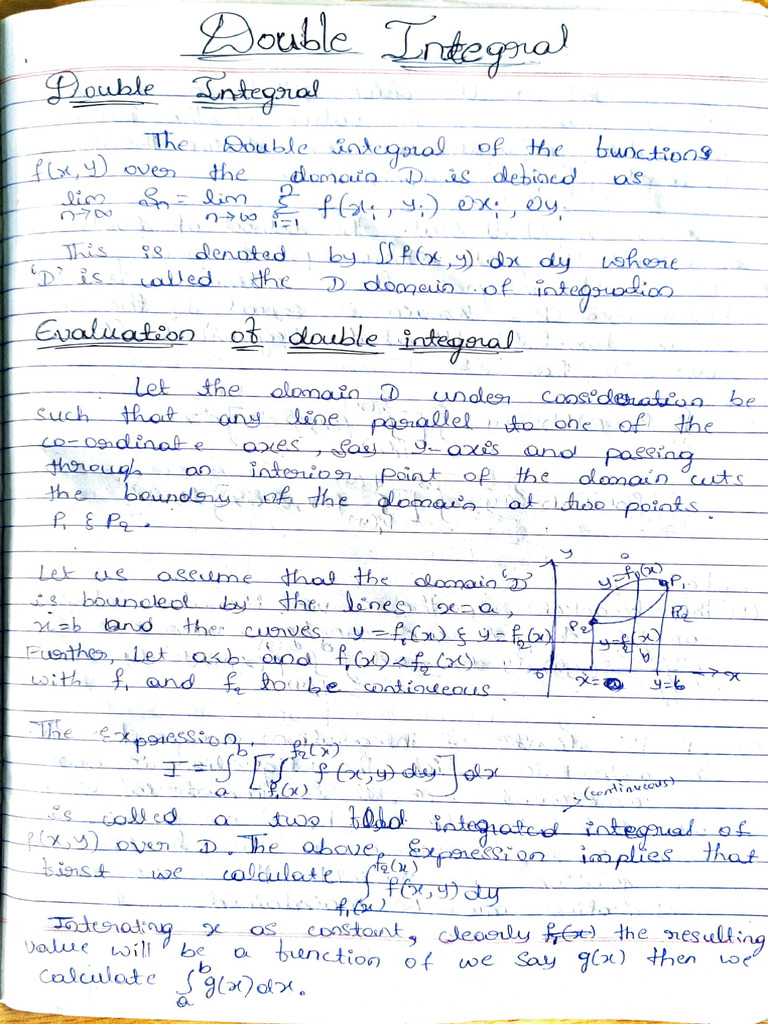 Double Integral
Double Integral
The Double integral of the functions
f(x,y) over the domain D is defined as
lim n→∞ Sn = lim n→∞ Σ i=1 n f(xi, yi) ∂xi, ∂yi
This is denoted by ∬f(x,y) dx dy where
'D' is called the D domain of integration
Evaluation of double integral
Let the domain D under consideration be
such that any line parallel to one of the
co-ordinate axes, say y-axis and passing
through an interior point of the domain cuts
the boundry of the domain at two points.
P1 & P2.
Let us assume that the domain 'D'
is bounded by the lines x=a,
x=b and the curves y=f1(x) & y=f2(x)
Further, Let a<b and f1(x)<f2(x)
with f1 and f2 to be continueous.
y
y=f1(x)
P1
P2
P2
y=f2(x)
b
0
x=a
y=b
x
The Expression,
I = ∫ a b [ ∫ f1(x) f2(x) f(x,y) dy ] dx
(continueous)
is called a two fold integrated integral of
f(x,y) over D. The above, Expression implies that
first we calculate ∫ f1(x) f2(x) f(x,y) dy
Interating x as constant, clearly f1(x) the resulting
value will be a function of we say g(x) then we
calculate ∫ a b g(x) dx.